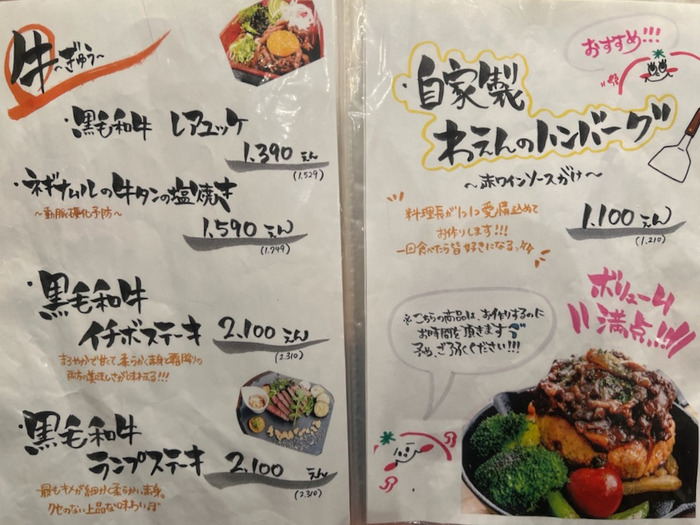 牛
～ぎゅう～
・黒毛和牛 レアユッケ
1.390えん
(1.529)
・ネギナムルの牛タンの塩焼き
～動脈硬化予防～
1.590えん
(1.749)
・黒毛和牛
イチボステーキ 2.100えん
(2.310)
まろやかで甘くて、柔らかい赤身と霜降りの
両方の美味しさが味わえる!!!
・黒毛和牛
ランプステーキ 2.100えん
(2.310)
最もキメが細かく柔らかい赤身。
クセのない上品な味わい
おすすめ!!!
・自家製
わえんのハンバーグ
～赤ワインソースがけ～
料理長が1つ1つ愛情込めて
お作りします!!!
一回食べたら皆好きになる
1.100えん
(1.210)
※こちらの商品は、お作りするのに
お時間を頂きます
予め、ご了承ください!!!
ボリューム
満点!!!